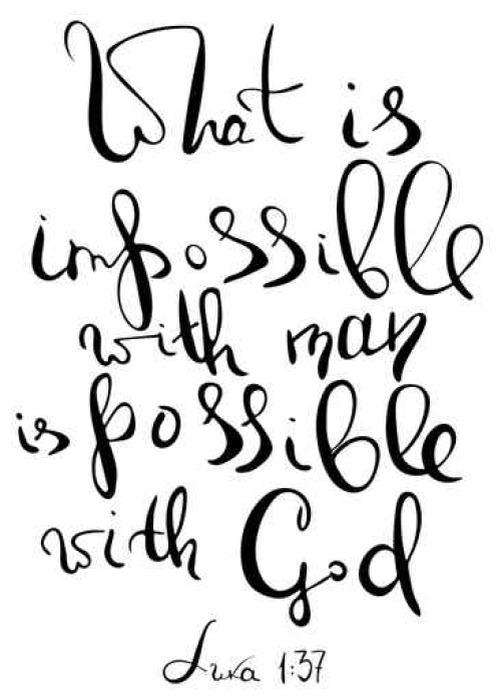 What is
impossible
with man
is possible
with God
Luka 1:37